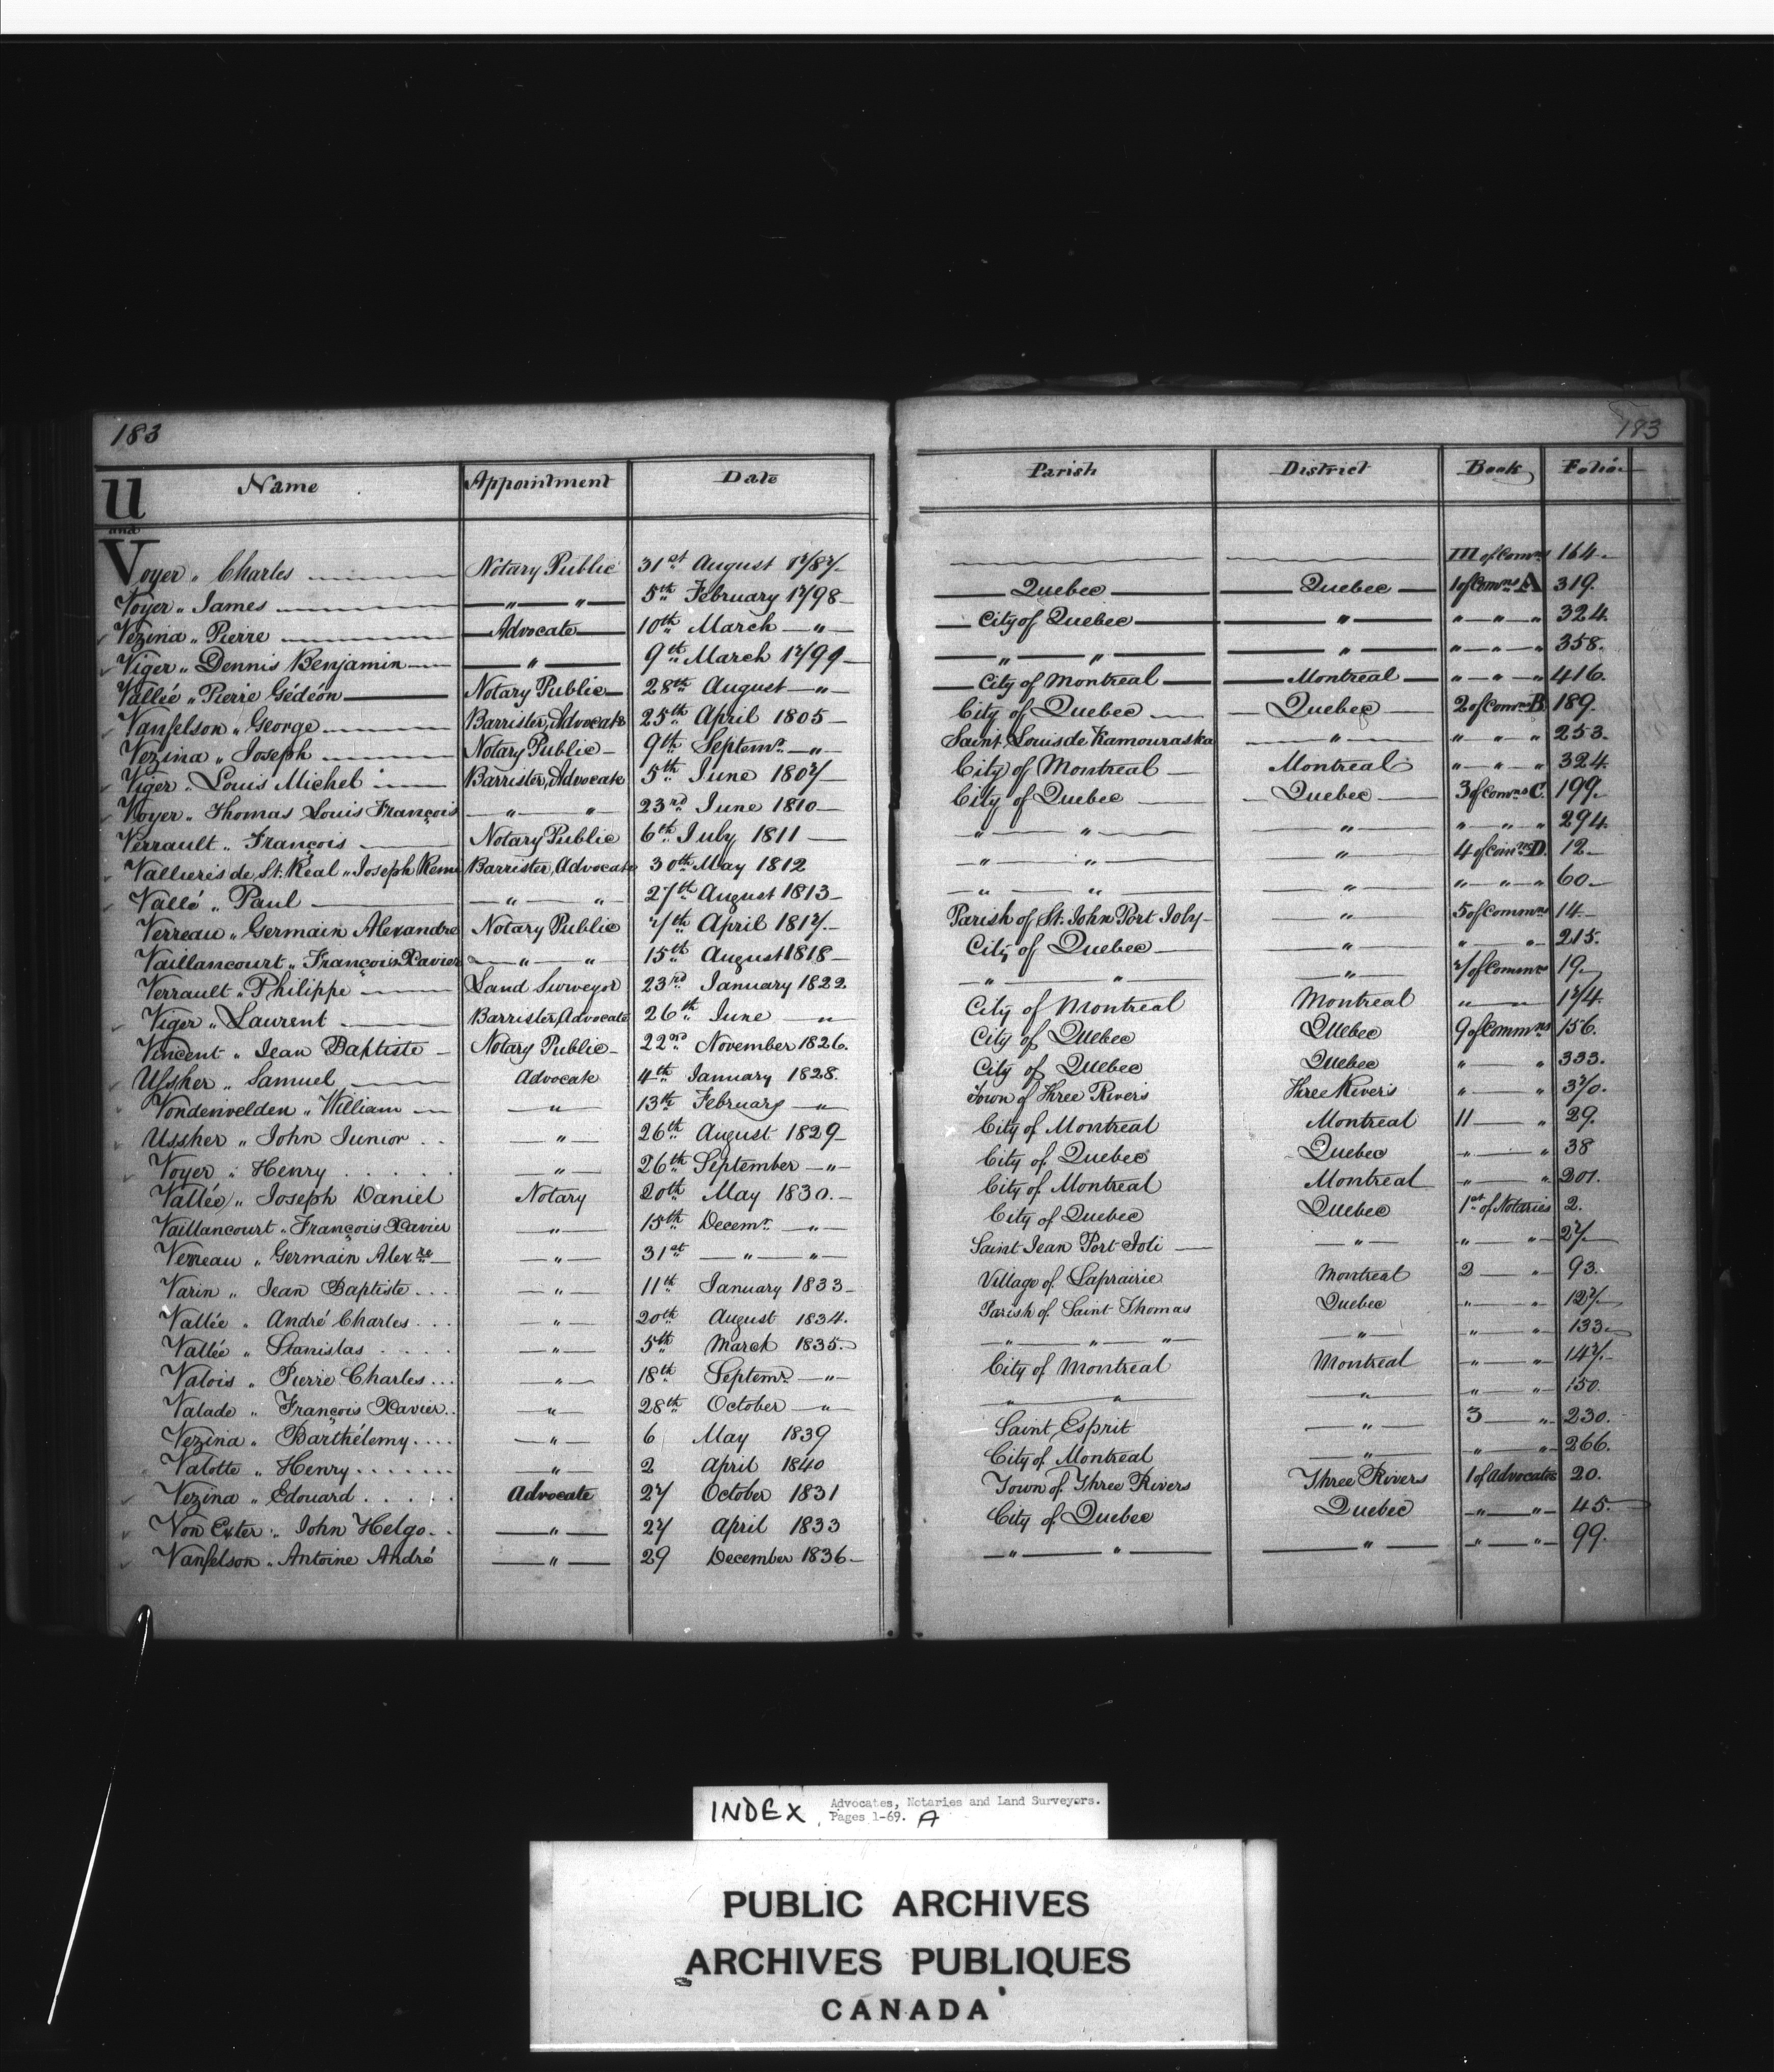 183 183
U and V
Name Appointment Date Parish District Book Folio
Voyer „ Charles Notary Public 31st August 1787 III of Comns 164
Voyer „ James „ „ 5th February 1798 Quebec Quebec 1 of Comns A 319.
Vezina „ Pierre Advocate 10th March „ City of Quebec „ „ „ „ 324.
Viger „ Dennis Benjamin „ 9th March 1799 „ „ „ „ „ „ 358.
Vallée „ Pierre Gédéon Notary Public 28th August „ City of Montreal Montreal „ „ „ 416.
Vanfelson „ George Barrister, Advocate 25th April 1805 City of Quebec Quebec 2 of Comns B 189.
Vezina „ Joseph Notary Public 9th Septemr. „ Saint Louis de Kamouraska „ „ „ „ 253.
Viger „ Louis Michel Barrister, Advocate 5th June 1807 City of Montreal Montreal „ „ „ 324.
Voyer „ Thomas Louis François „ „ 23rd June 1810 City of Quebec Quebec 3 of Comns C. 199.
Verrault „ François Notary Public 6th July 1811 „ „ „ „ „ „ 294.
Vallieres de St. Real „ Joseph Remi Barrister, Advocate 30th May 1812 „ „ „ 4 of Comns D. 12
Vallé „ Paul „ „ 27th August 1813 „ „ „ „ „ „ 60
Verreau „ Germain Alexandre Notary Public 7th April 1817. Parish of St. John Port Joly „ 5 of Commns 14
Vaillancourt „ François Xavier „ „ 15th August 1818 City of Quebec „ „ „ 215.
Verrault „ Philippe Land Surveyor 23rd January 1822 „ „ „ 7 of Commns 19
Viger „ Laurent Barrister, Advocate 26th June „ City of Montreal Montreal „ „ 174.
Vincent „ Jean Baptiste Notary Public 22nd November 1826. City of Quebec Quebec 9 of Commns 156.
Ussher „ Samuel Advocate 4th January 1828. City of Quebec Quebec „ „ 333.
Vondenvelden „ William „ 13th February „ Town of Three Rivers Three Rivers „ „ 370.
Ussher „ John Junior „ 26th August 1829 City of Montreal Montreal 11 „ 29.
Voyer „ Henry „ 26th September „ City of Quebec Quebec „ „ 38
Vallée „ Joseph Daniel Notary 20th May 1830. City of Montreal Montreal „ „ 201.
Vaillancourt „ François Xavier „ 15th Decemr. „ City of Quebec Quebec 1st of Notaries 2.
Verreau „ Germain Alexre „ 31st „ „ Saint Jean Port Joli „ „ „ 27
Varin „ Jean Baptiste „ 11th January 1833 Village of Laprairie Montreal 2 „ 93.
Vallée „ André Charles „ 20th August 1834. Parish of Saint Thomas Quebec „ „ 127
Vallée „ Stanislas „ 5th March 1835. „ „ „ „ „ „ 133
Valois „ Pierre Charles „ 18th Septemr. „ City of Montreal Montreal „ „ 147.
Valade „ François Xavier „ 28th October „ „ „ „ „ „ 150.
Vezina „ Barthélemy „ 6 May 1839 Saint Esprit „ 3 „ 230.
Valotte „ Henry „ 2 April 1840 City of Montreal „ „ „ 266.
Vezina „ Edouard Advocate 27 October 1831 Town of Three Rivers Three Rivers 1 of Advocates 20.
Von Exter „ John Helgo „ 27 April 1833 City of Quebec Quebec „ „ 45
Vanfelson „ Antoine André „ 29 December 1836 „ „ „ „ „ 99.
INDEX Advocates, Notaries and Land Surveyors.
Pages 1-69. A
PUBLIC ARCHIVES
ARCHIVES PUBLIQUES
CANADA